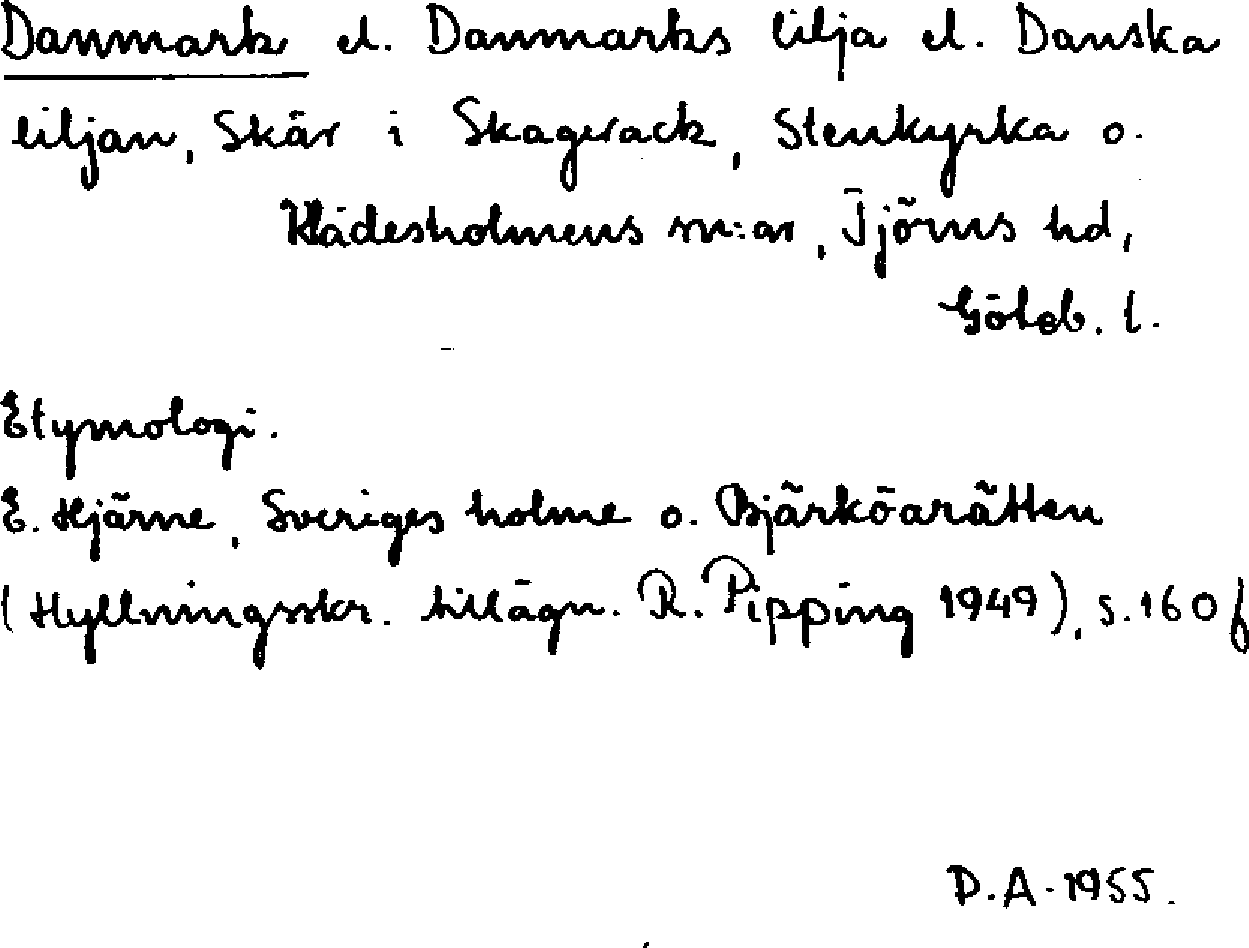 Danmark el. Danmarks lilja el. Danska
liljan, Skär i Skagerack, Stenkyrka o.
Klädesholmens sn:ar, Tjörns hd,
Göteb. l.
Etymologi.
E. Hjärne, Sveriges holme o. Bjärköarätten
(Hyllningsskr. tillägn. R. Pipping 1949), s. 160 f
D.A. 1955.